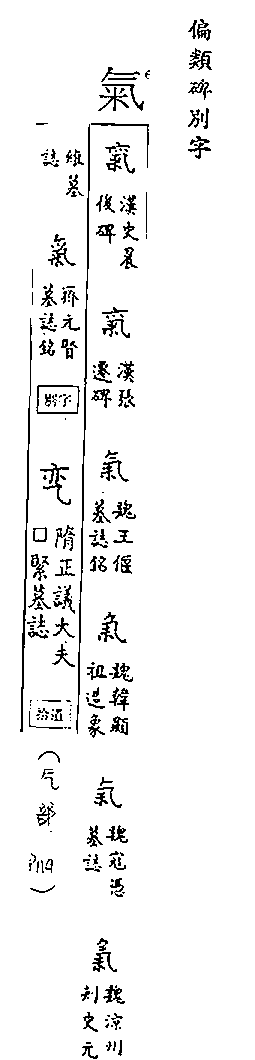 偏類碑別字
氣
氣
漢史晨
後碑
氣
漢張
遷碑
氣
魏王偃
墓誌銘
氣
魏韓顯
祖造象
氣
魏寇憑
墓誌
氣
魏涼州
刺史元
維墓
誌
氣
齊元賢
墓誌銘
別字
隋正議大夫
□緊墓誌
拾遺
(气部 P119)